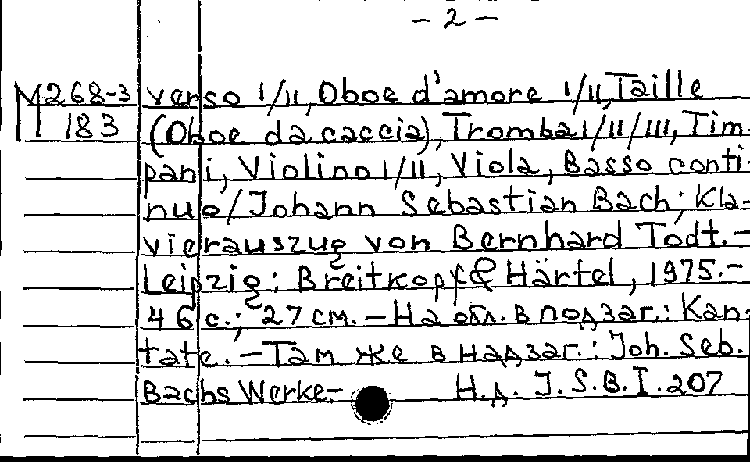 - 2 -
М268-3 verso I/II, Oboe d'amore I/II, Taille
183 (Oboe da caccia), Tromba I/II/III, Tim-
pani, Violino I/II, Viola, Basso conti-
nuo/Johann Sebastian Bach; Kla-
vierauszug von Bernhard Todt.-
Leipzig: Breitkopf & Härtel, 1975.-
46 с.; 27 см. - На обл. в подзаг.: Kan-
tate. - Там же в надзаг.: Joh. Seb.
Bachs Werke.- Н.д. J.S.B.I.207